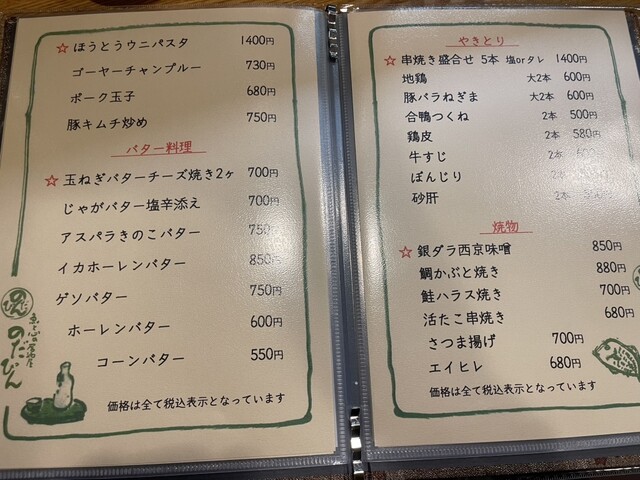 ☆ ほうとうウニパスタ 1400円
ゴーヤーチャンプルー 730円
ポーク玉子 680円
豚キムチ炒め 750円
バター料理
☆ 玉ねぎバターチーズ焼き2ヶ 700円
じゃがバター塩辛添え 700円
アスパラきのこバター 750円
イカホーレンバター 850円
ゲソバター 750円
ホーレンバター 600円
コーンバター 550円
価格は全て税込表示となっています
のだびん
やきとり
☆ 串焼き盛合せ 5本 塩orタレ 1400円
地鶏 大2本 600円
豚バラねぎま 大2本 600円
合鴨つくね 2本 500円
鶏皮 2本 580円
牛すじ 2本
ぼんじり 2本
砂肝 2本
焼物
☆ 銀ダラ西京味噌 850円
鯛かぶと焼き 880円
鮭ハラス焼き 700円
活たこ串焼き 680円
さつま揚げ 700円
エイヒレ 680円
価格は全て税込表示となっています